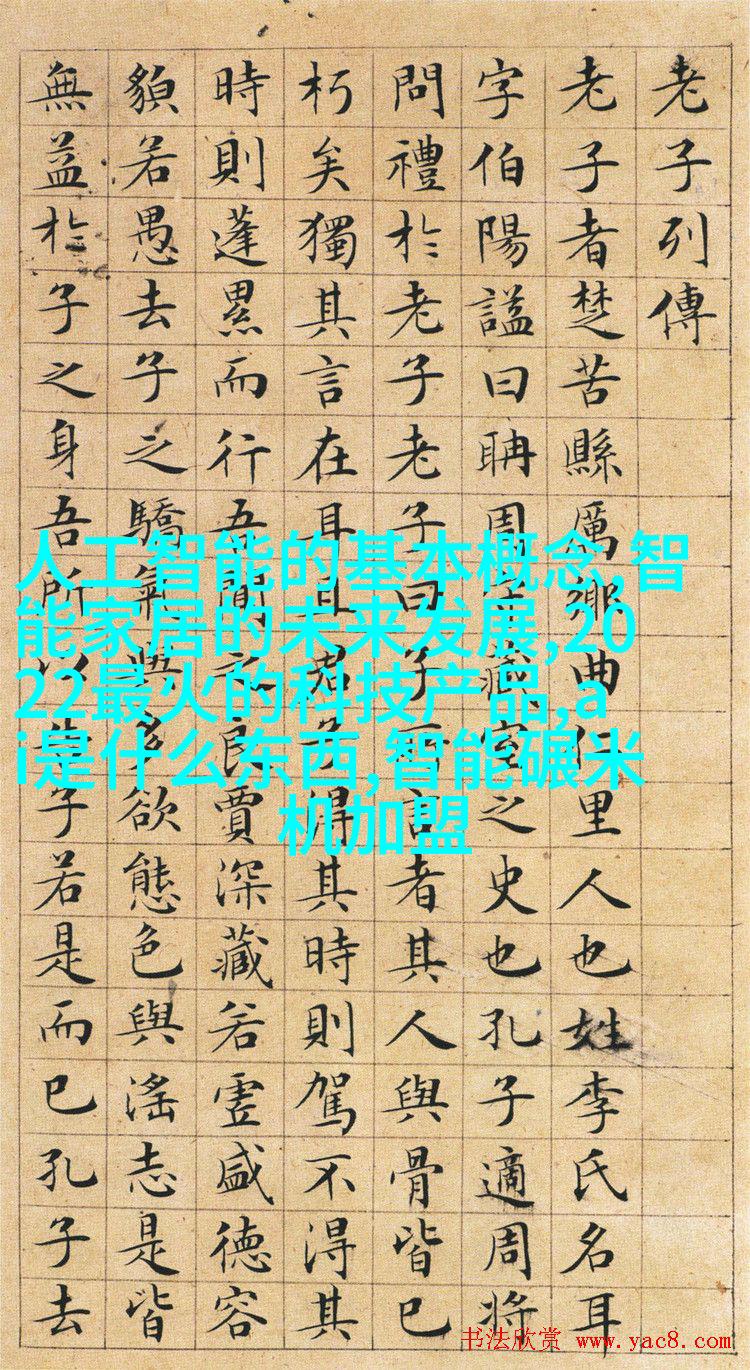 老子列傳
老子者楚苦縣厲鄉曲仁里人也姓李氏名耳
字伯陽謚曰聃周守藏室之史也孔子適周將
問禮於老子老子曰子所言者其人與骨皆已
朽矣獨其言在耳且君子得其時則駕不得其
時則蓬累而行吾聞之良賈深藏若虛盛德容
貌若愚去子之驕氣與多欲態色與淫志是皆
無益於子之身吾所以告子若是而已孔子去
人工智能的基本概念,智
能家居的未来发展,20
22最火的科技产品,a
i是什么东西,智能碾米
机加盟
书法欣赏 www.yac8.com